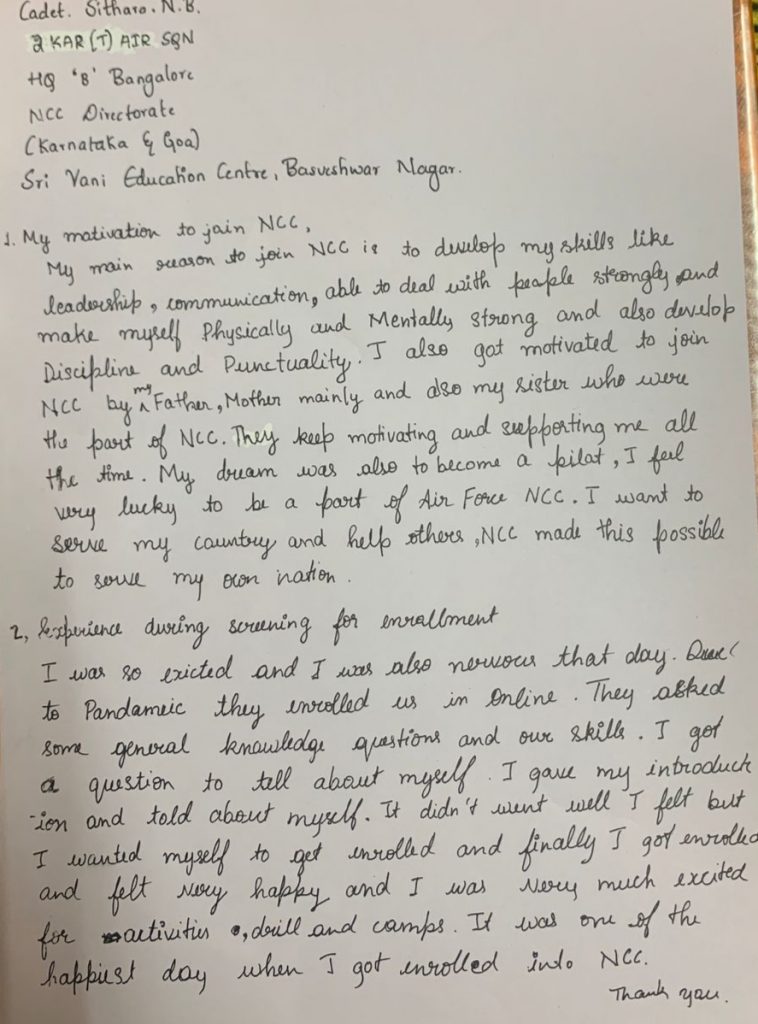 Cadet. Sithara. N.B.
2 KAR (T) AIR SQN
HQ 'B' Bangalore
NCC Directorate
(Karnataka & Goa)
Sri Vani Education Centre, Basveshwar Nagar.
1. My motivation to join NCC,
My main reason to join NCC is to develop my skills like
leadership, communication, able to deal with people strongly and
make myself Physically and Mentally strong and also develop
Discipline and Punctuality. I also got motivated to join
NCC by my Father, Mother mainly and also my sister who were
the part of NCC. They keep motivating and supporting me all
the time. My dream was also to become a pilot, I feel
very lucky to be a part of Air Force NCC. I want to
serve my country and help others, NCC made this possible
to serve my own nation.
2, Experience during screening for enrollment
I was so exicted and I was also nervous that day. Due
to Pandameic they enrolled us in Online. They asked
some general knowledge questions and our skills. I got
a question to tell about myself. I gave my introduct
-ion and told about myself. It didn't went well I felt but
I wanted myself to get enrolled and finally I got enrolled
and felt very happy and I was very much excited
for activities, drill and camps. It was one of the
happiest day when I got enrolled into NCC.
Thank you.